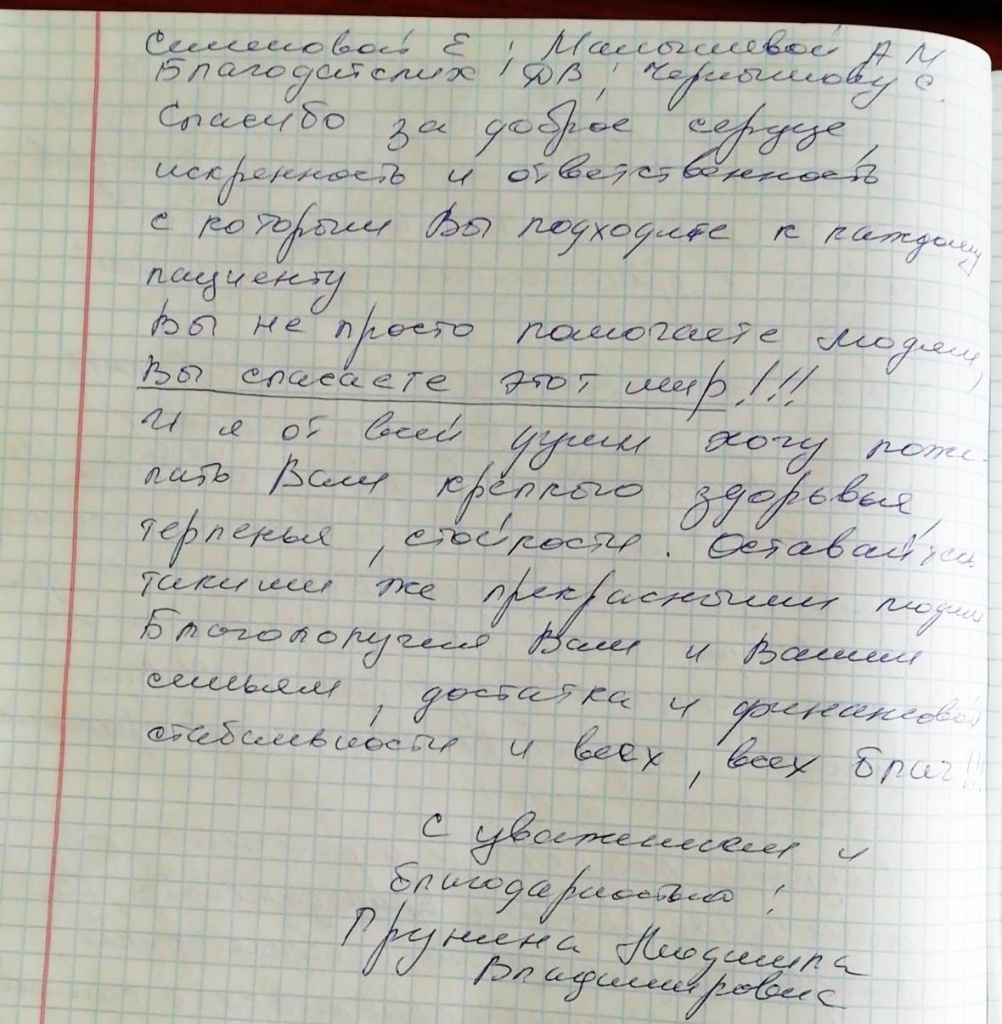 Семеновой Е, Малышевой А М
Благодатских ДВ, Чернышову С.
Спасибо за доброе сердце,
искренность и ответственность
с которым Вы подходите к каждому
пациенту
Вы не просто помогаете людям,
Вы спасаете этот мир!!!
И я от всей души хочу поже-
лать Вам крепкого здоровья,
терпенья, стойкости. Оставайтесь
такими же прекрасными людьми
Благополучия Вам и Вашим
семьям, достатка и финансовой
стабильности и всех, всех благ!!!
С уважением и
благодарностью!
Людмила
Владимировна